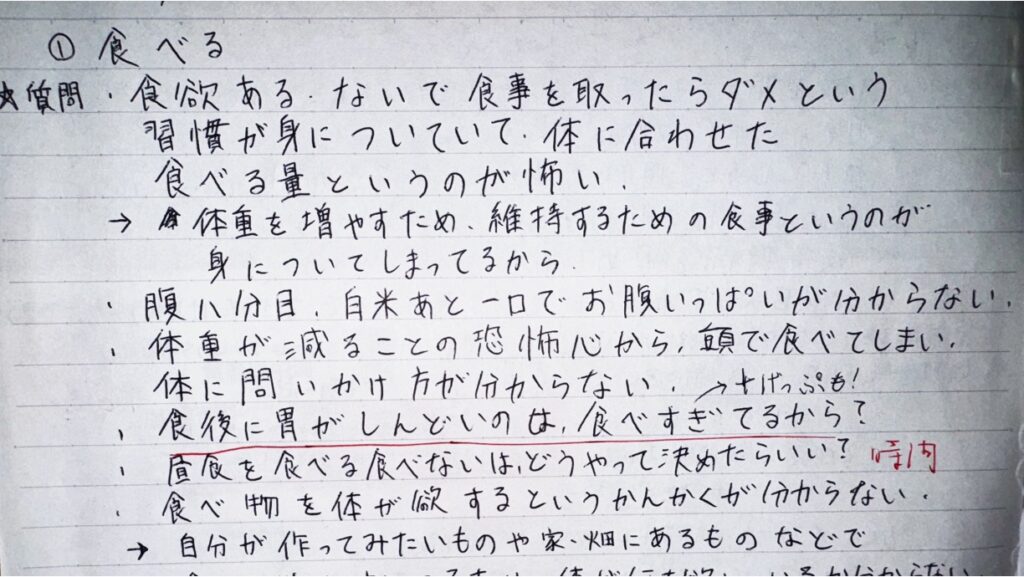 ① 食べる
☆質問・食欲ある・ないで食事を取ったらダメという
習慣が身についていて、体に合わせた
食べる量というのが怖い.
→ 体重を増やすため、維持するための食事というのが
身についてしまってるから.
・腹八分目、白米あと一口でお腹いっぱいが分からない.
・体重が減ることの恐怖心から、頭で食べてしまい.
体に問いかけ方が分からない.
→ げっぷも!
・食後に胃がしんどいのは、食べすぎてるから?
・昼食を食べる食べないは、どうやって決めたらいい? 時間
・食べ物を体が欲するというかんかくが分からない.
→ 自分が作ってみたいものや家・畑にあるものなどで